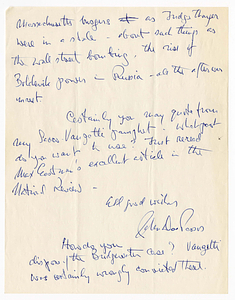 Massachusetts beggars as Judge Thayer
were in a stole - about such things as
the Wall Street bombing, the rise of
Bolshevik powers in Russia - all the afterwar
unrest
Certainly you may quote from
my Sacco Vanzetti pamphlet - what part
do you want to use? Just reread
Max Eastman's excellent article in the
National Review -
All good wishes
John Dos Passos
How do you
dispose of the Bridgewater case? Vanzetti
was certainly wrongly convicted there.